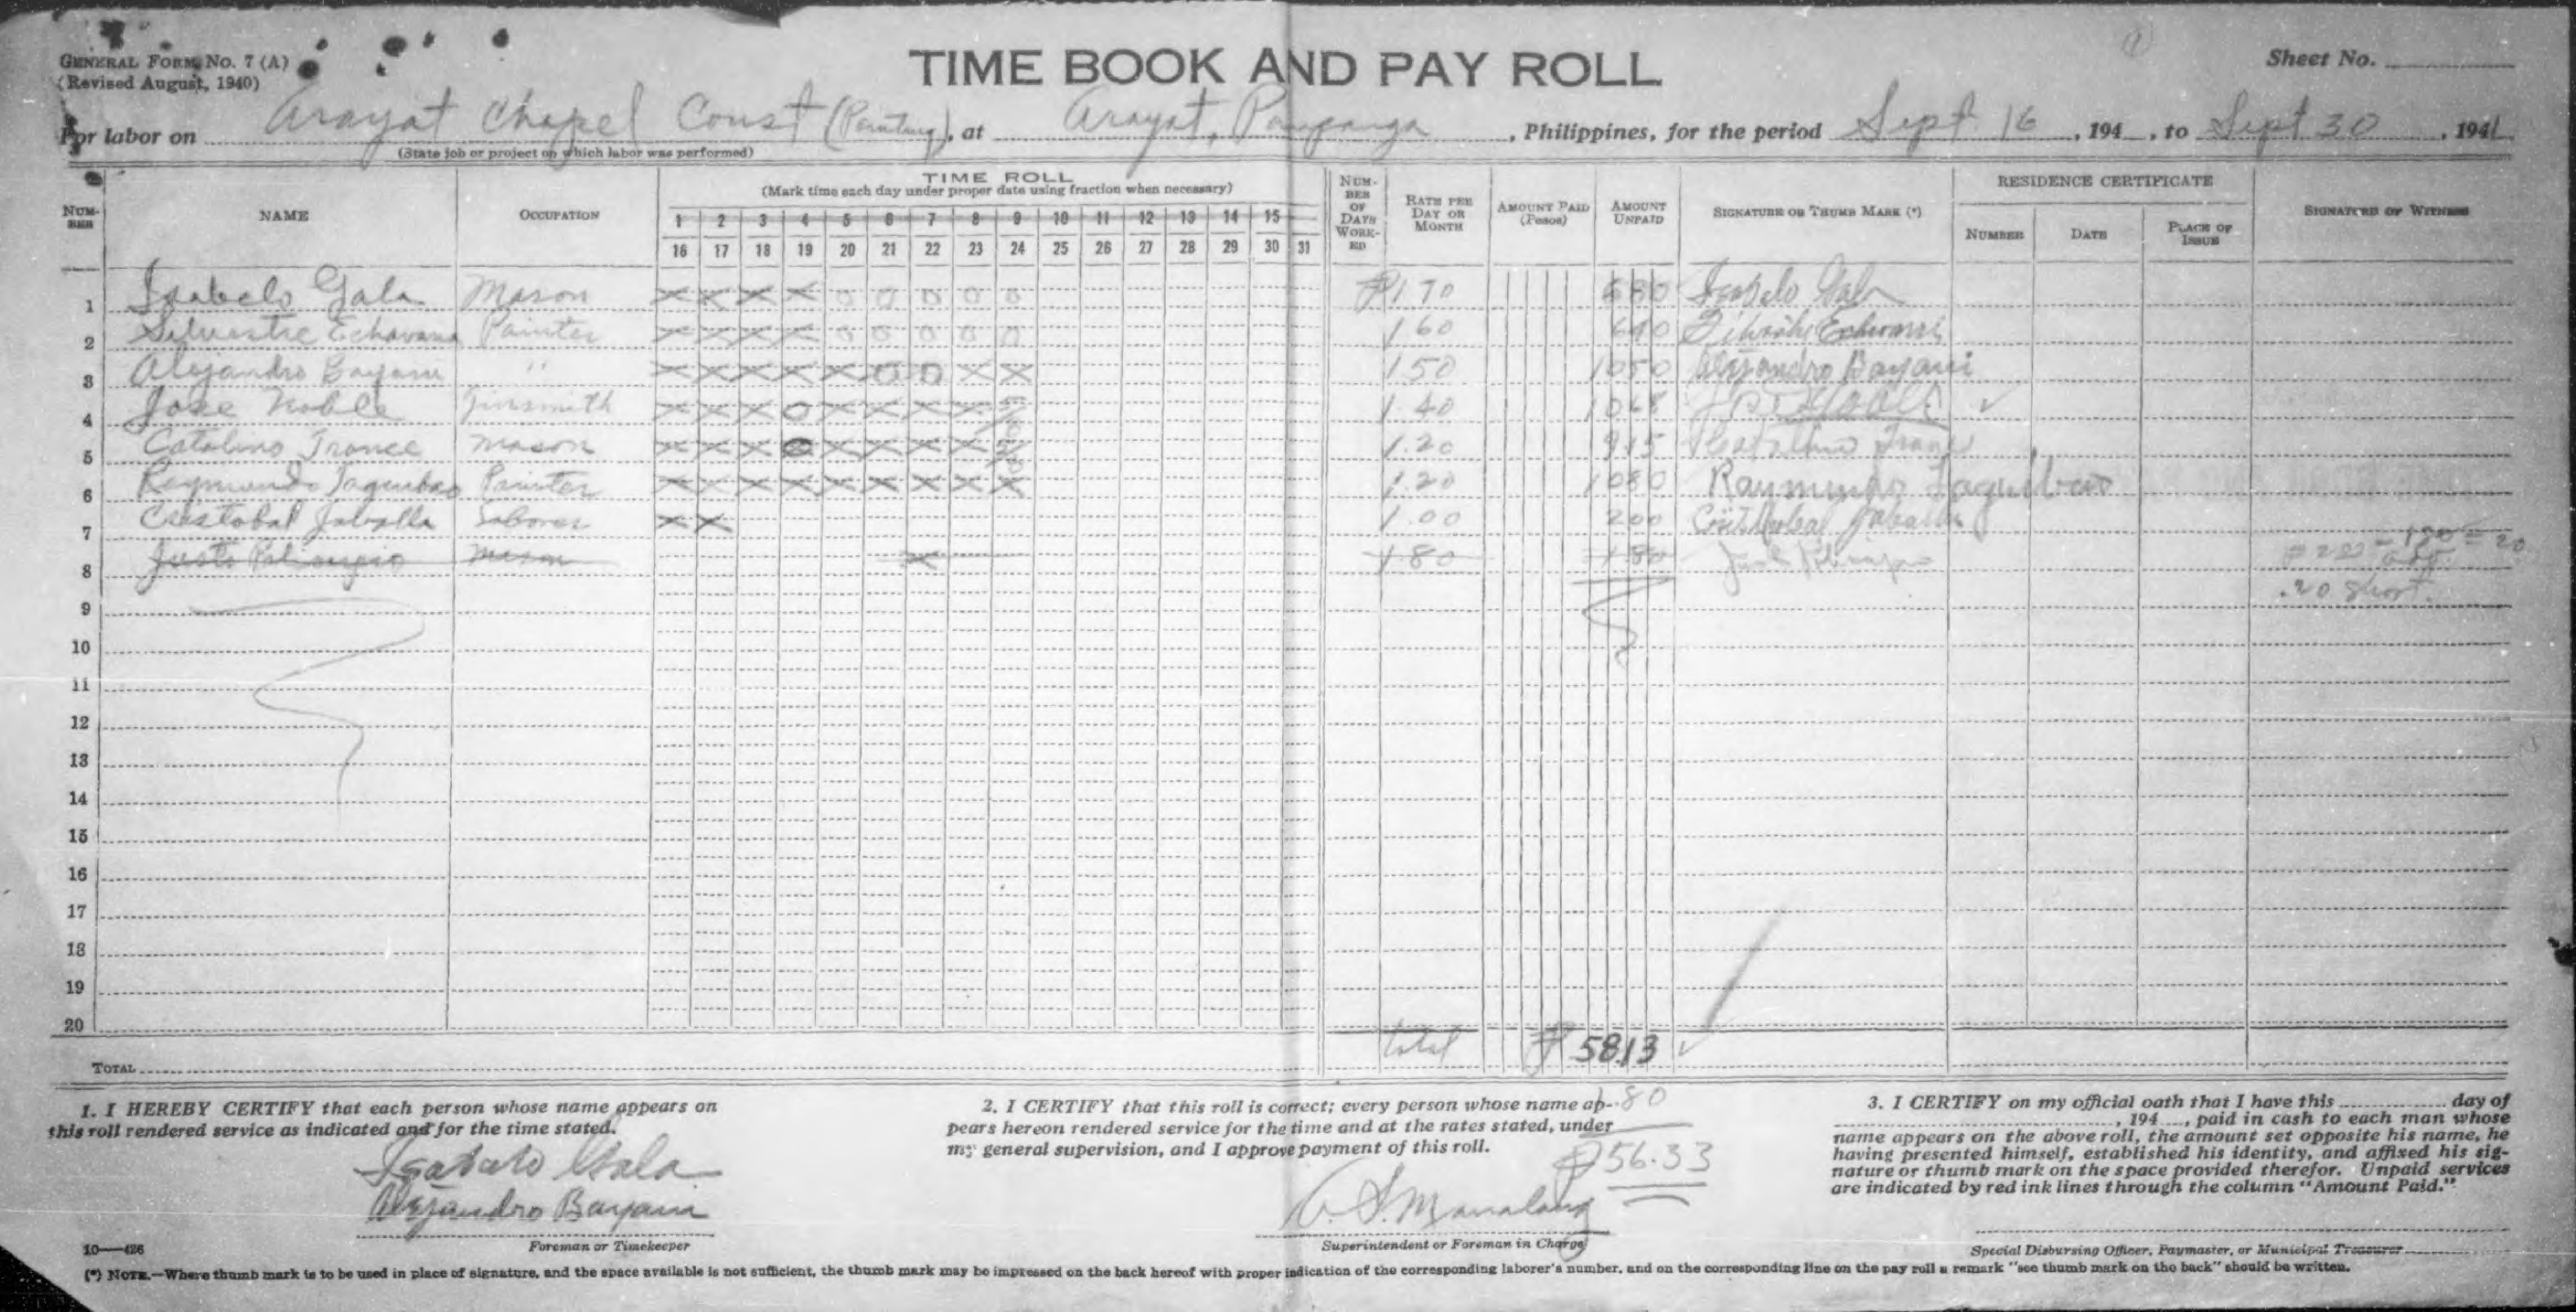 GENERAL FORM NO. 7 (A)
(Revised August, 1940)
TIME BOOK AND PAY ROLL
Sheet No.
For labor on Arayat Chapel Const (Painting), at Arayat, Pampanga, Philippines, for the period Sept 16, 194 , to Sept 30, 1941
(State job or project on which labor was performed)
NUMBER NAME OCCUPATION TIME ROLL (Mark time each day under proper date using fraction when necessary) NUMBER OF DAYS WORKED RATE PER DAY OR MONTH AMOUNT PAID (Pesos) AMOUNT UNPAID SIGNATURE OR THUMB MARK (*) RESIDENCE CERTIFICATE NUMBER DATE PLACE OF ISSUE SIGNATURE OF WITNESS
1 2 3 4 5 6 7 8 9 10 11 12 13 14 15
16 17 18 19 20 21 22 23 24 25 26 27 28 29 30 31
1 Isabelo Gala Mason X X X X 0 0 0 0 0 ₱1.70 680 Isabelo Gala
2 Silvestre Painter X X X X 0 0 0 0 0 1.60 640
3 Alejandro Bayani " X X X X X 0 0 X X 1.50 1050 Alejandro Bayani
4 Jose Noble Tinsmith X X X 0 X X X X 5/8 1.40 1068 Jose Noble ✓
5 Catalino Trance Mason X X X X X X X 5/8 1.20 915 Catalino
6 Raymundo Taguibao Painter X X X X X X X X X 1.20 1080 Raymundo Taguibao
7 Cristobal Labores X X 1.00 200 Cristobal
8 Justo Mason X 1.80 1.80
= 20
.20 short.
9
10
11
12
13
14
15
16
17
18
19
20
total ₱ 58.13 ✓
TOTAL
1.80
₱56.33
1. I HEREBY CERTIFY that each person whose name appears on
this roll rendered service as indicated and for the time stated.
Isabelo Gala
Alejandro Bayani
Foreman or Timekeeper
2. I CERTIFY that this roll is correct; every person whose name ap-
pears hereon rendered service for the time and at the rates stated, under
my general supervision, and I approve payment of this roll.
S. Manalang
Superintendent or Foreman in Charge
3. I CERTIFY on my official oath that I have this day of
, 194 , paid in cash to each man whose
name appears on the above roll, the amount set opposite his name, he
having presented himself, established his identity, and affixed his sig-
nature or thumb mark on the space provided therefor. Unpaid services
are indicated by red ink lines through the column "Amount Paid."
Special Disbursing Officer, Paymaster, or Municipal Treasurer
10—426
(*) NOTE.—Where thumb mark is to be used in place of signature, and the space available is not sufficient, the thumb mark may be impressed on the back hereof with proper indication of the corresponding laborer's number, and on the corresponding line on the pay roll a remark "see thumb mark on the back" should be written.